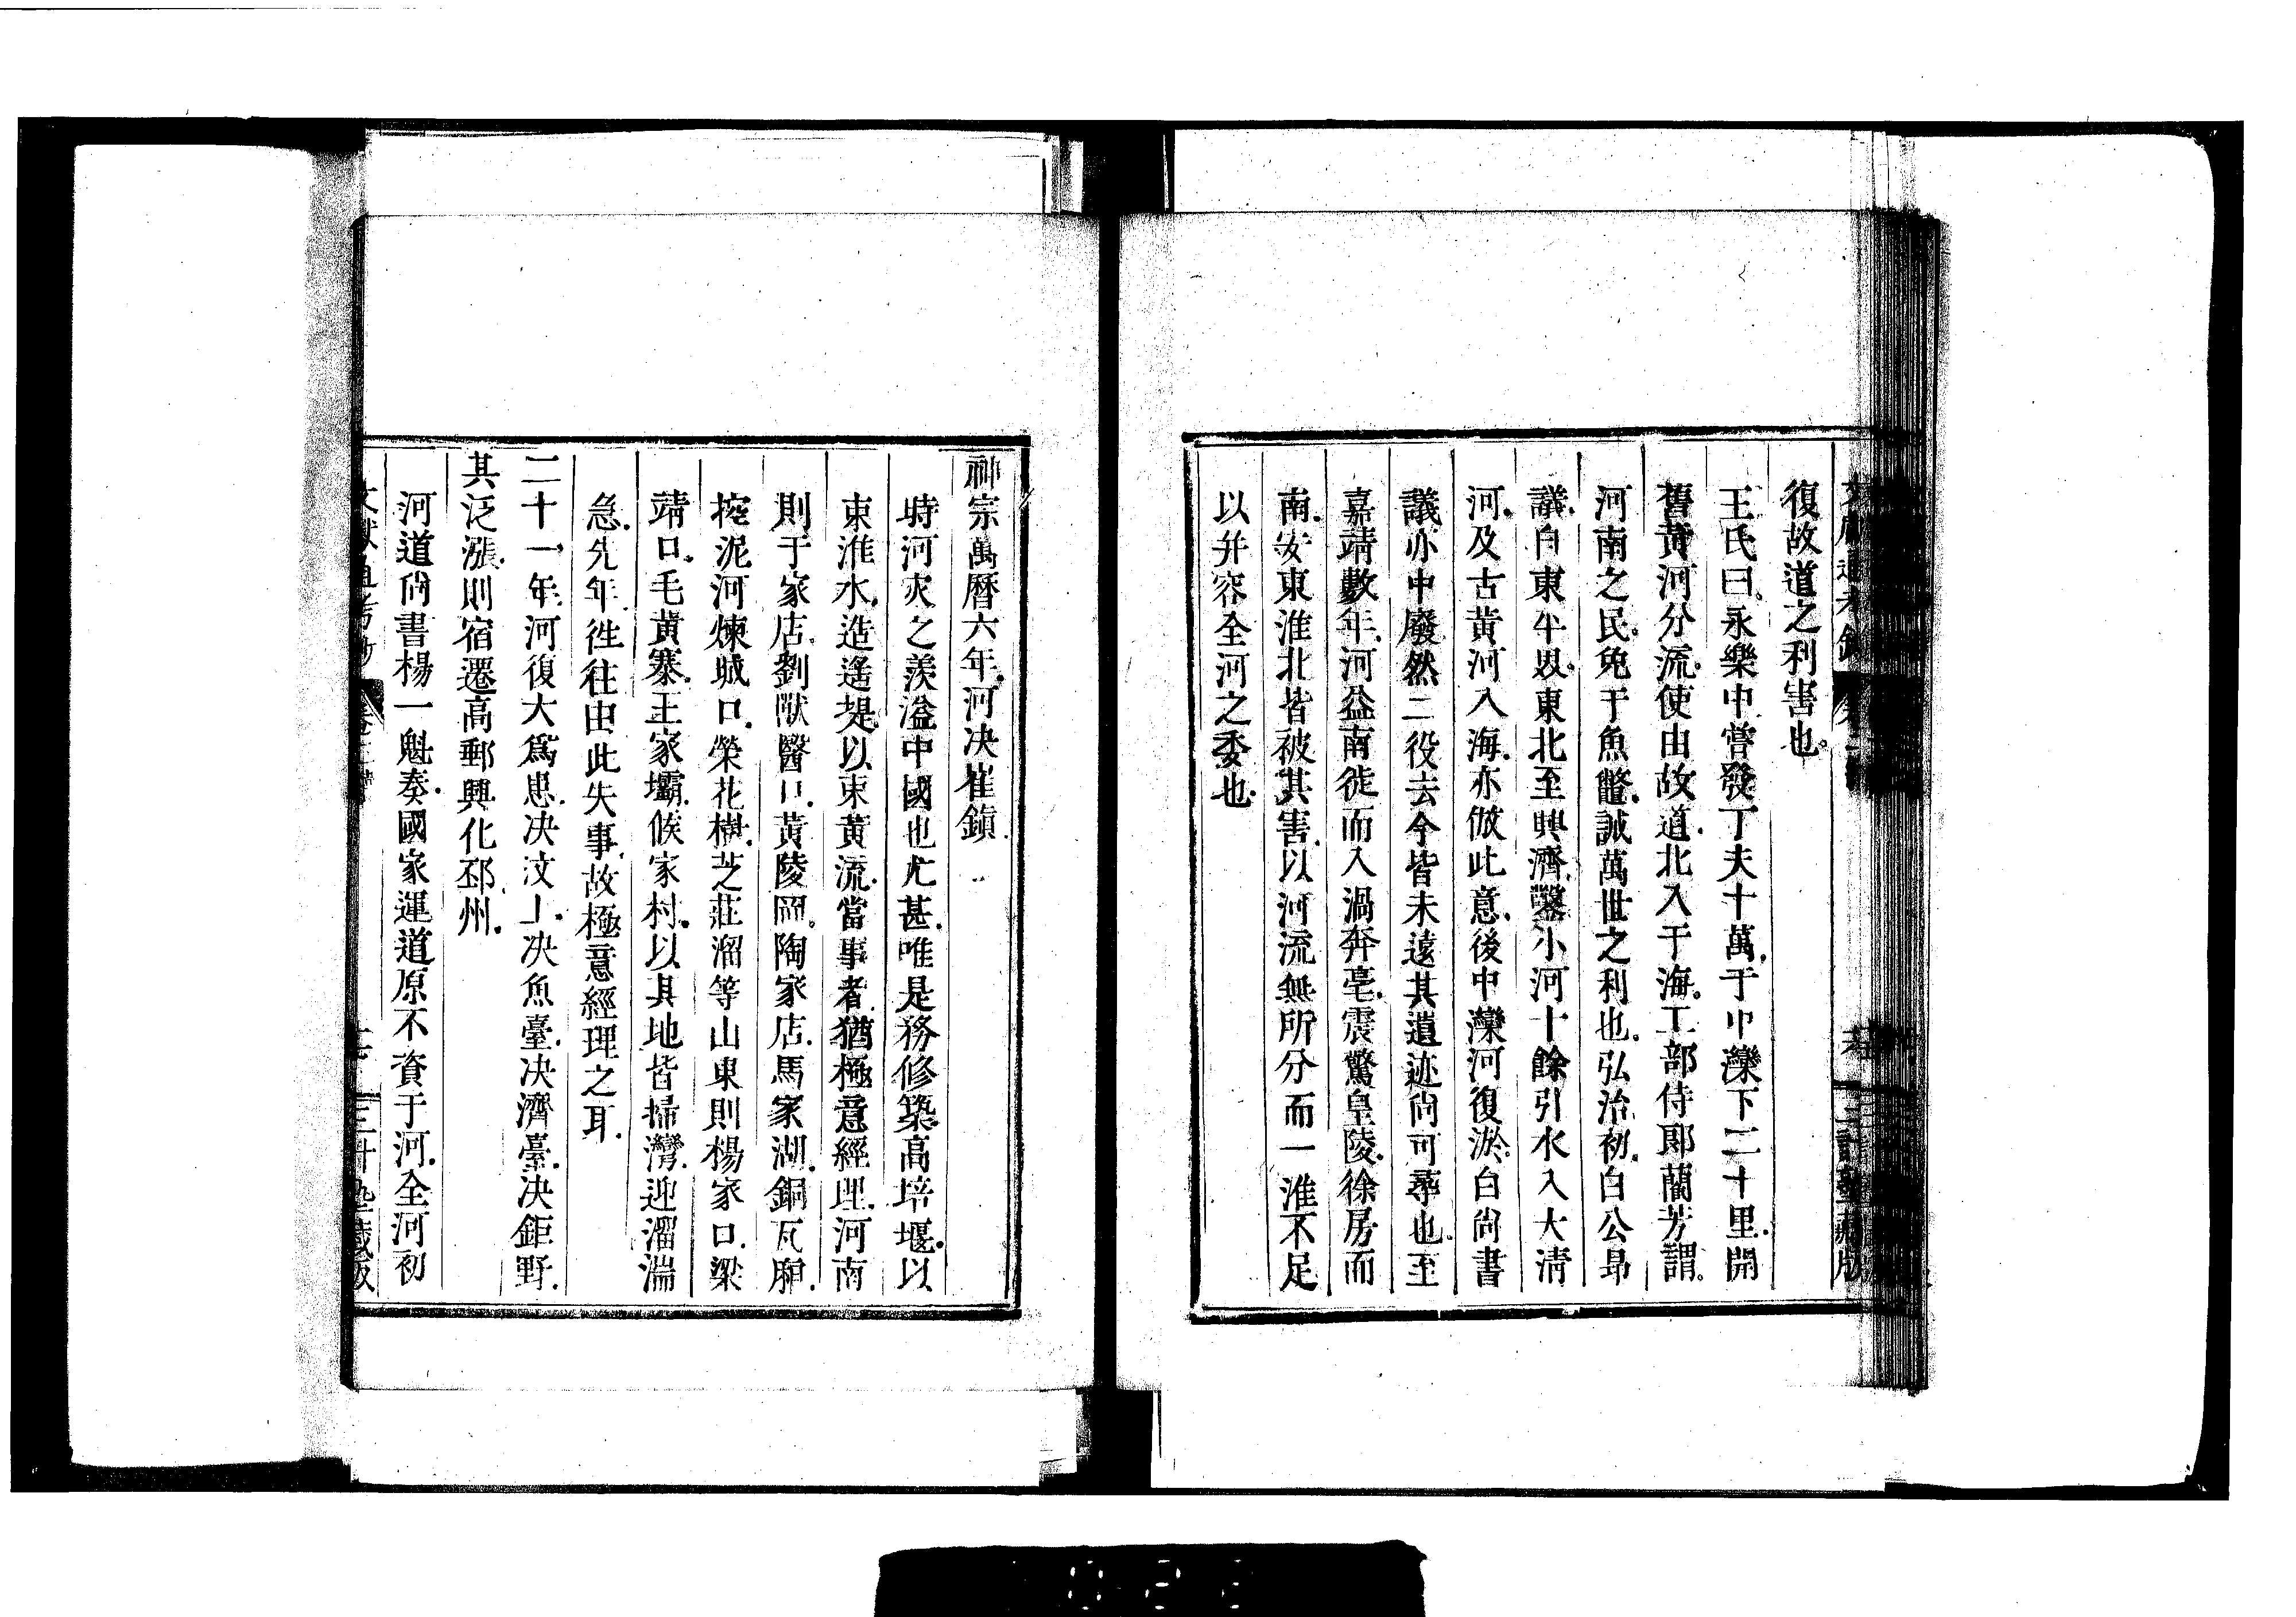 復故道之利害也
王氏曰永樂中嘗發丁夫十萬于中灤下二十里開
舊黄河分流使由故道北入于海工部侍郎藺芳謂
河南之民免于魚鼈誠萬世之利也弘治初白公昻
議自東平以東北至興濟鑿小河十餘引水入大清
河及古黄河入海亦倣此意後中灤河復淤白尚書
議亦中廢然二役去今皆未遠其遺迹尚可尋也至
嘉靖數年河益南徙而入渦奔亳震驚皇陵徐房而
南安東淮北皆被其害以河流無所分而一淮不足
以并容全河之委也
神宗萬曆六年河决崔鎮
時河灾之羨溢中國也尤甚唯是務修築高培堰以
束淮水造遥堤以束黄流當事者猶極意經理河南
則于家店劉獸醫口黄陵岡陶家店馬家湖銅瓦廂
挖泥河煉城口榮花樹芝莊溜等山東則楊家口梁
靖口毛黄寨王家壩倐家村以其地皆掃灣迎溜湍
急先年徃往由此失事故極意經理之耳
二十一年河復大爲患决汶上决魚臺决濟臺决鉅野
其泛漲則宿遷高郵興化邳州
河道尚書楊一魁奏國家運道原不資于河全河初